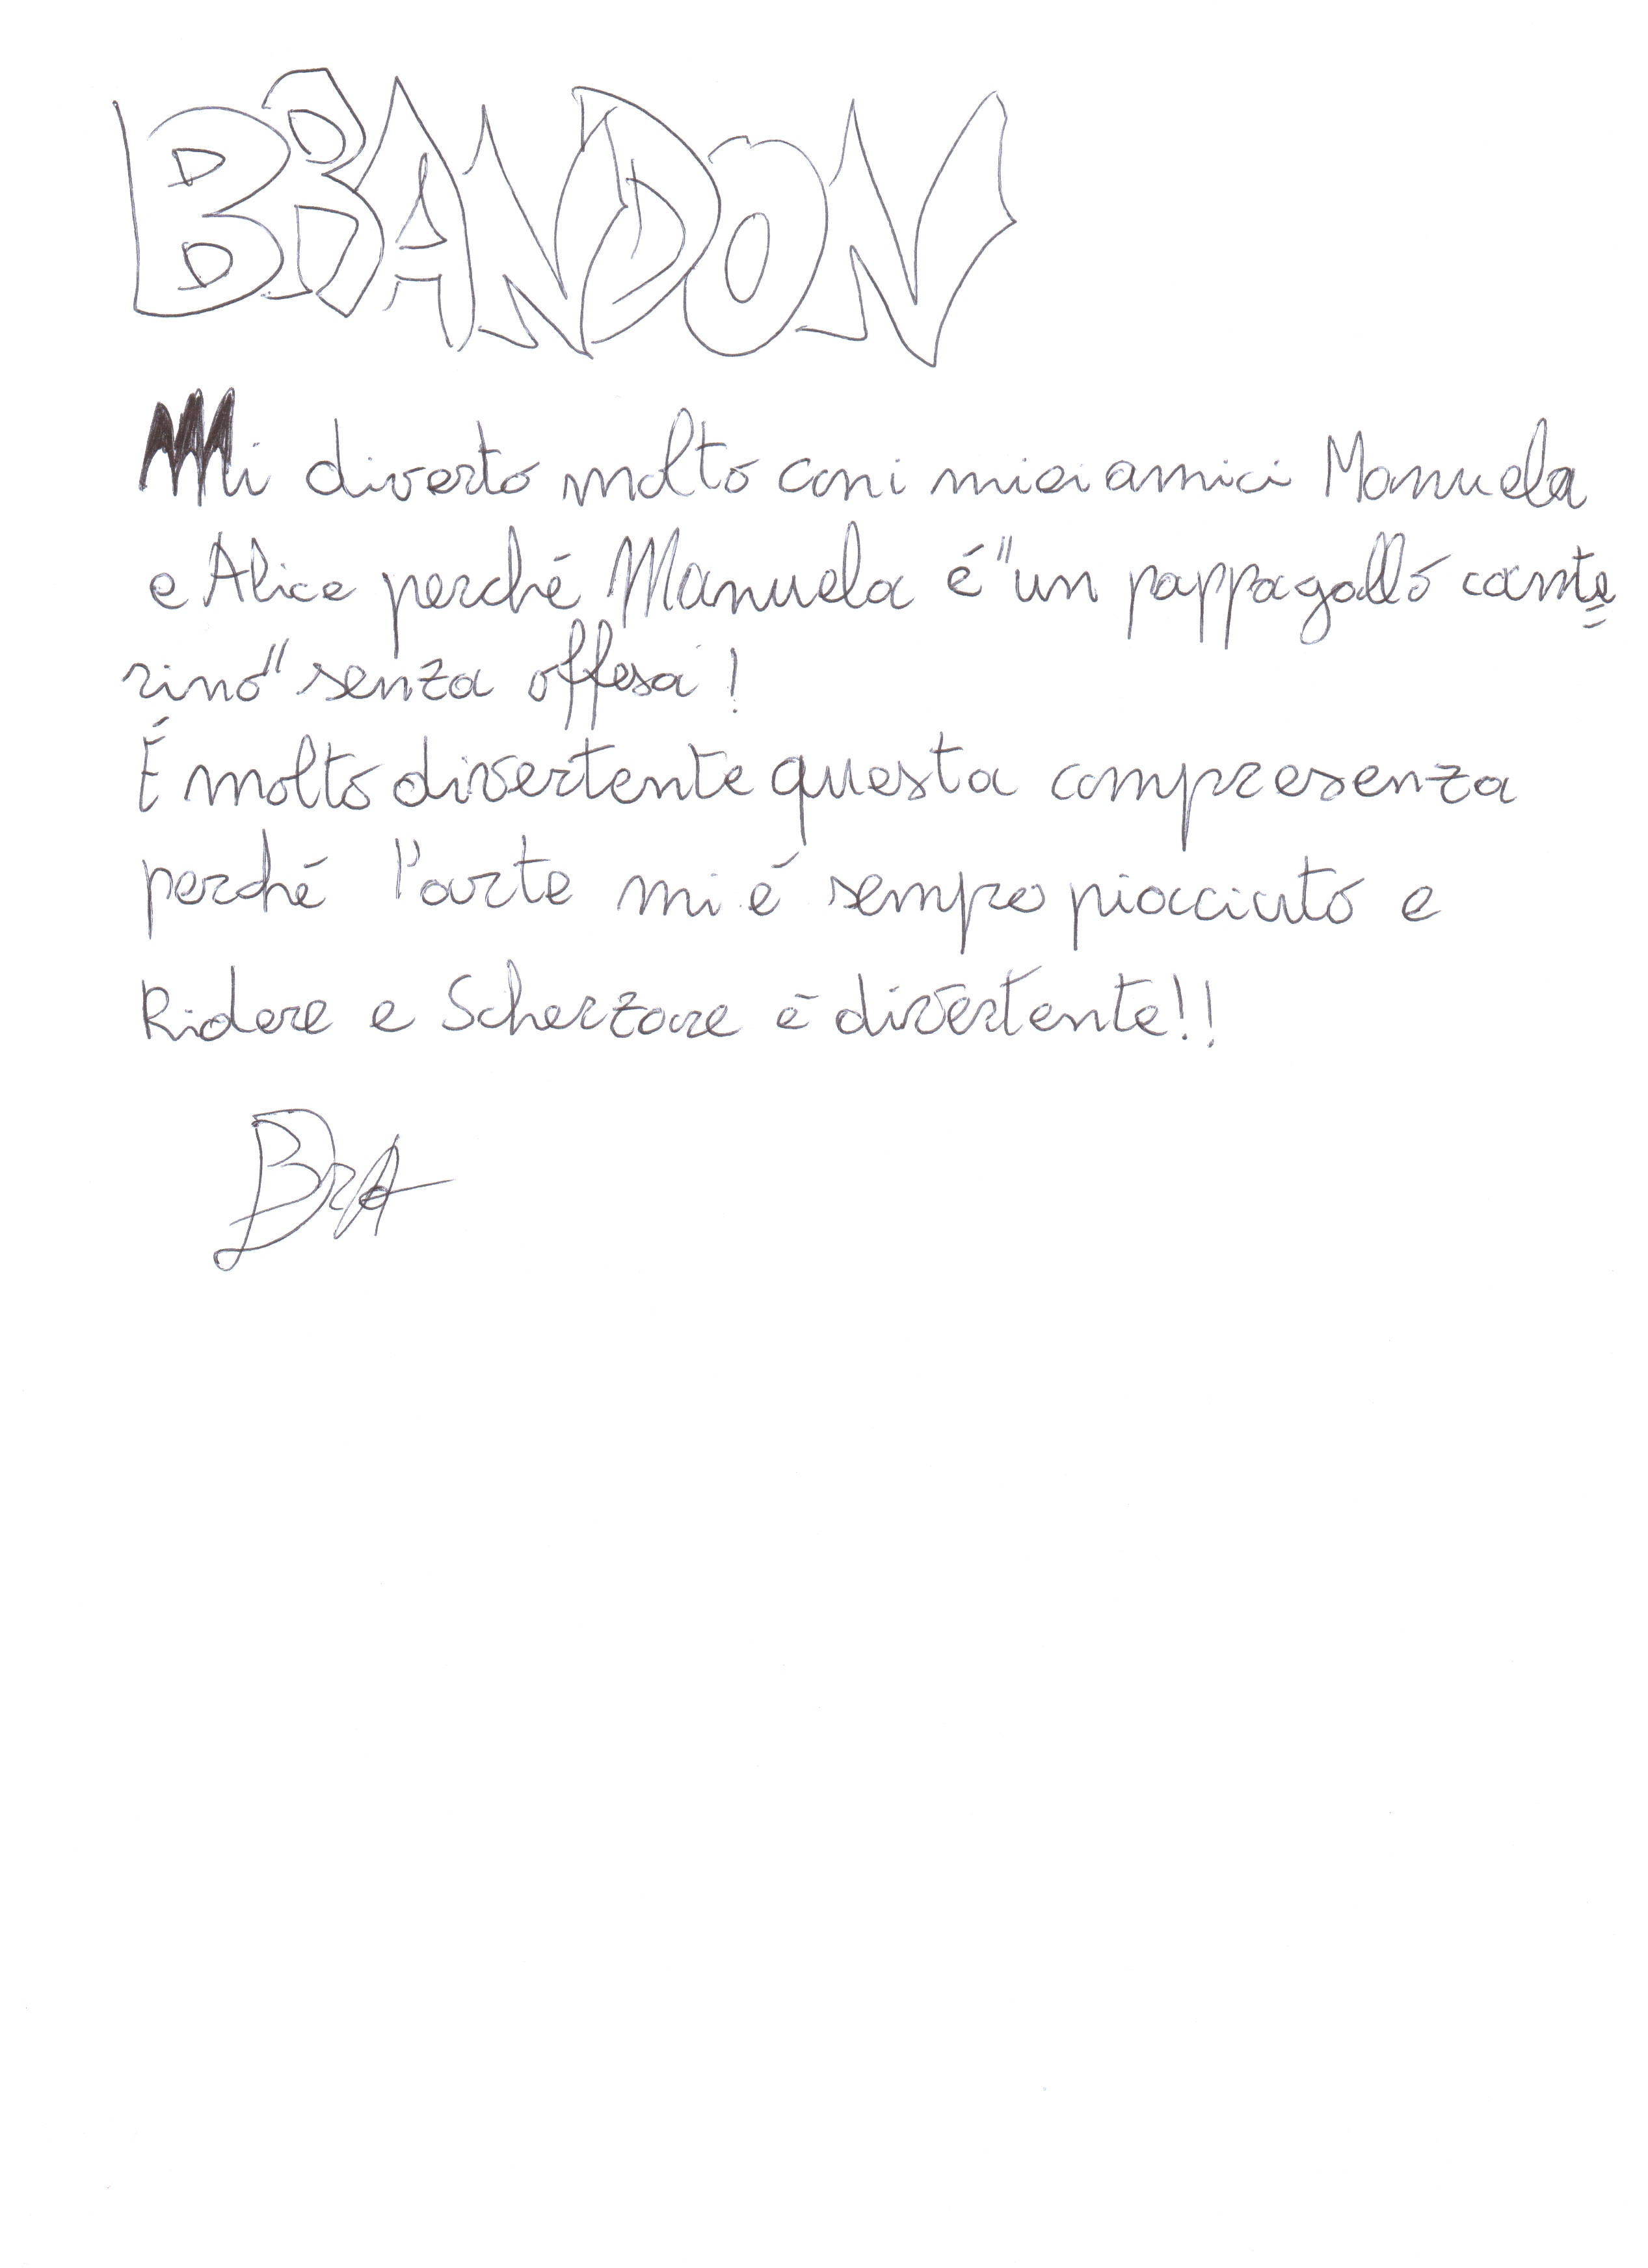 BRANDON
Mi diverto molto con i miei amici Manuela
e Alice perché Manuela é "un pappagallo cante
rino" senza offesa!
É molto divertente questa compresenza
perché l'arte mi é sempre piacciuto e
Ridere e Scherzare é divertente!!
BrA